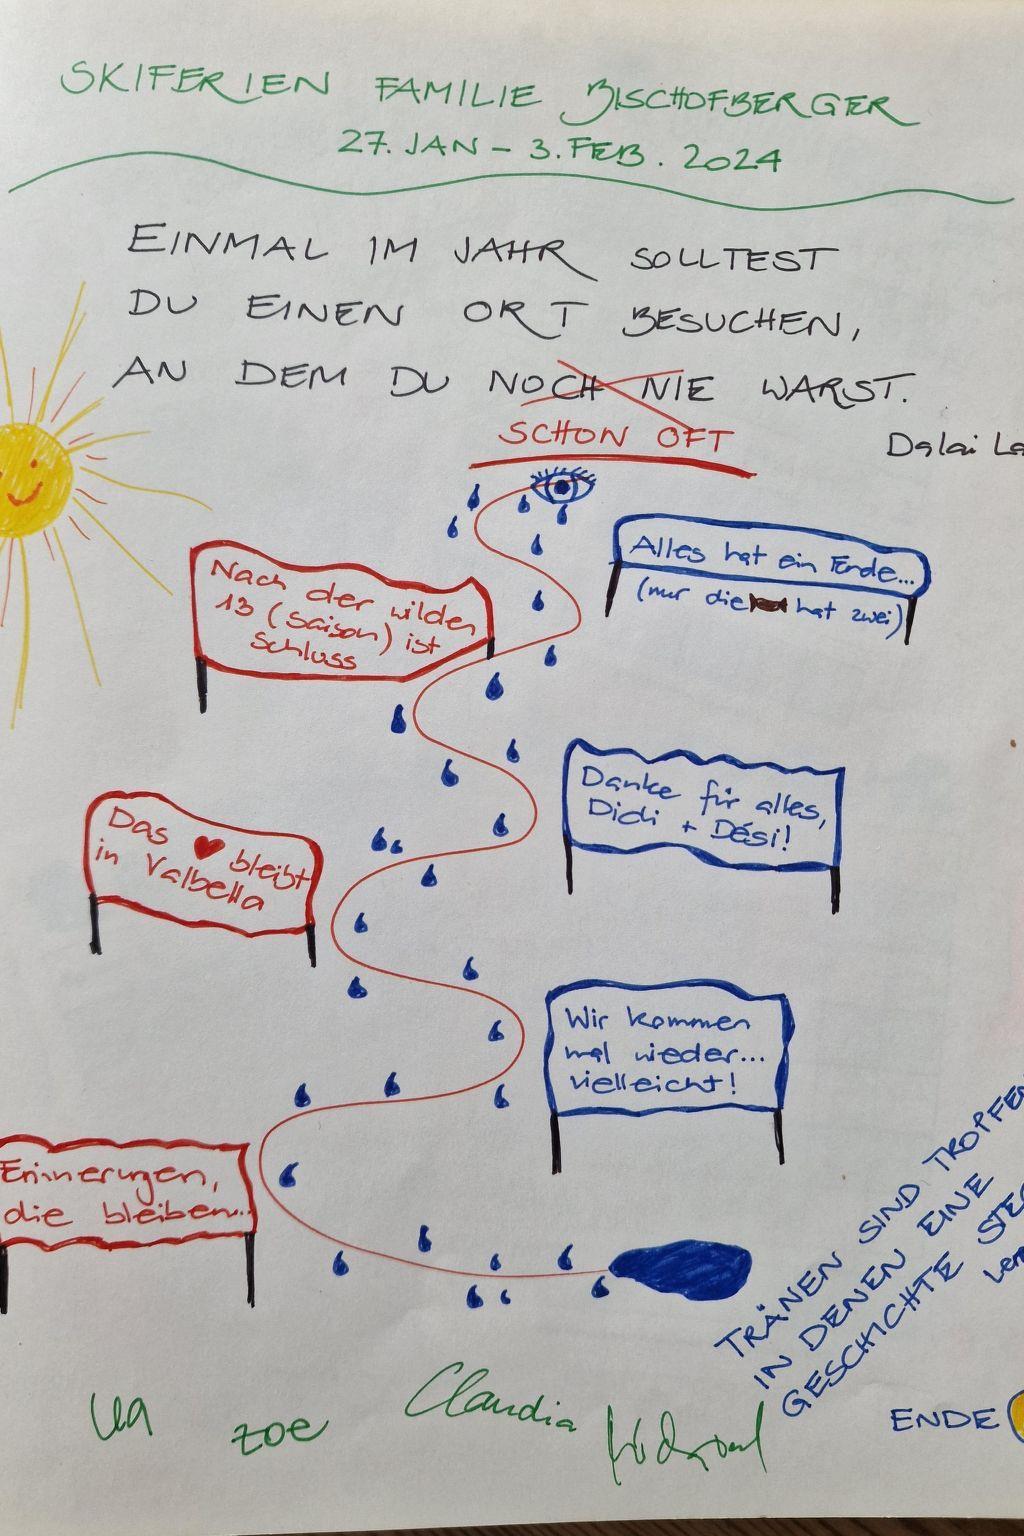 SKIFERIEN FAMILIE BISCHOFBERGER
27. JAN – 3. FEB. 2024
EINMAL IM JAHR SOLLTEST
DU EINEN ORT BESUCHEN,
AN DEM DU NOCH NIE WARST.
SCHON OFT
Dalai La
Alles hat ein Ende...
(nur die hat zwei)
Nach der wilden
13 (Saison) ist
Schluss
Danke für alles,
Didi + Dési!
Das ♥ bleibt
in Valbella
Wir kommen
mal wieder...
vielleicht!
Erinnerungen,
die bleiben...
TRÄNEN SIND TROPFEN
IN DENEN EINE
GESCHICHTE STEC
Lea
zoe
Claudia
ENDE